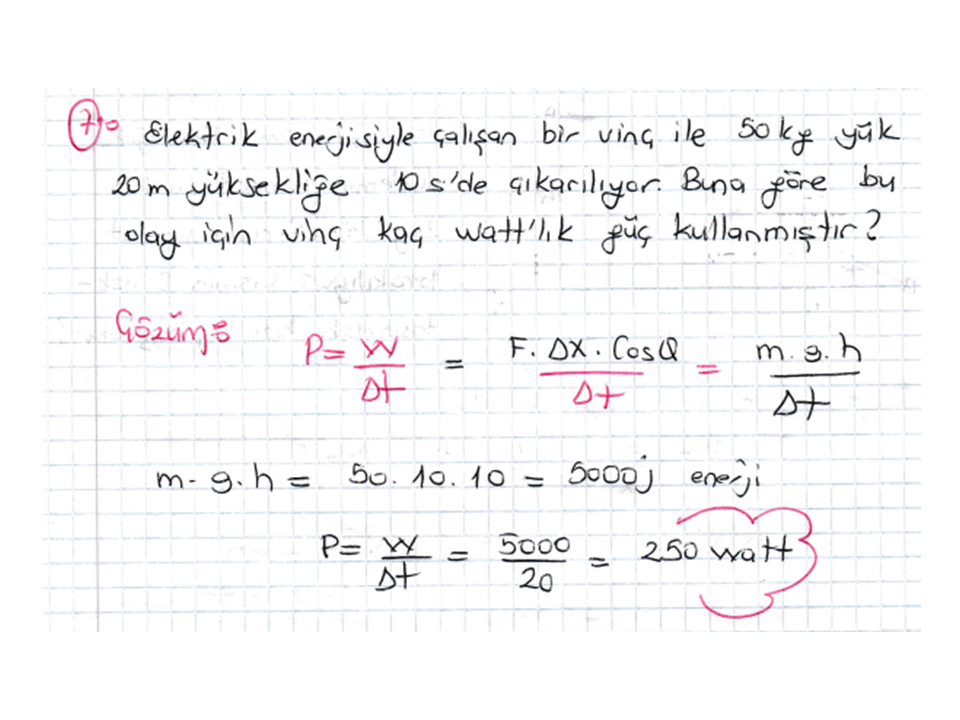 7. Elektrik enerjisiyle çalışan bir vinç ile 50kg yük
20m yüksekliğe 10s'de çıkarılıyor. Buna göre bu
olay için vinç kaç watt'lık güç kullanmıştır?
Çözüm:
P = W/Δt = F. ΔX. CosQ/Δt = m.g.h/Δt
m.g.h = 50.10.10 = 5000j enerji
P = W/Δt = 5000/20 = 250 watt